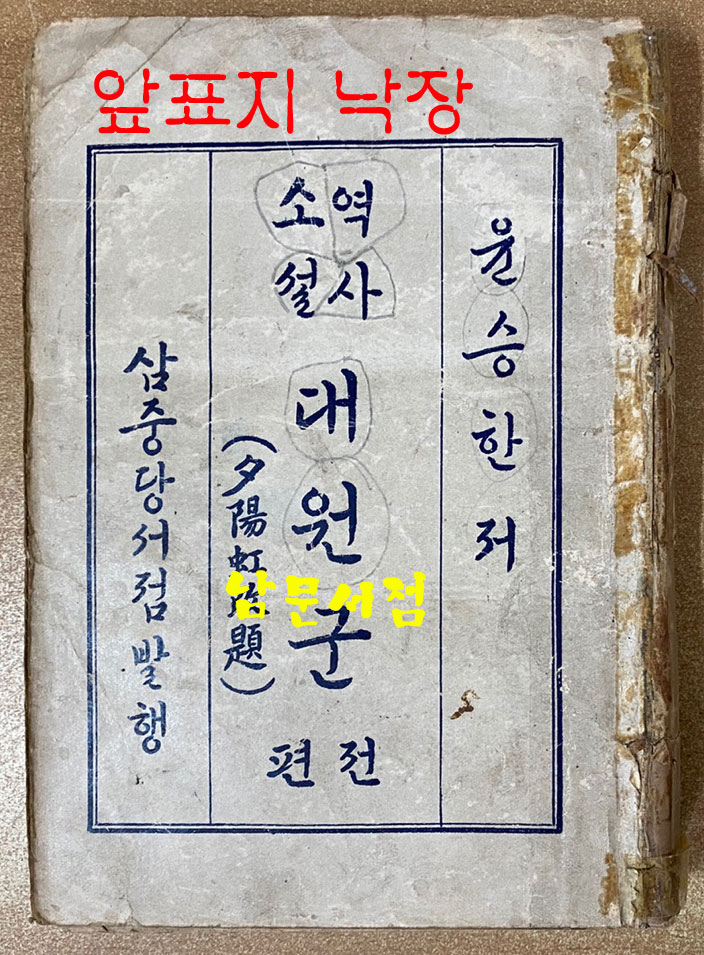 앞표지 낙장
윤승한 저
역사
소설
대원군
전편
(夕陽虹改題)
남문서점
삼중당서점발행